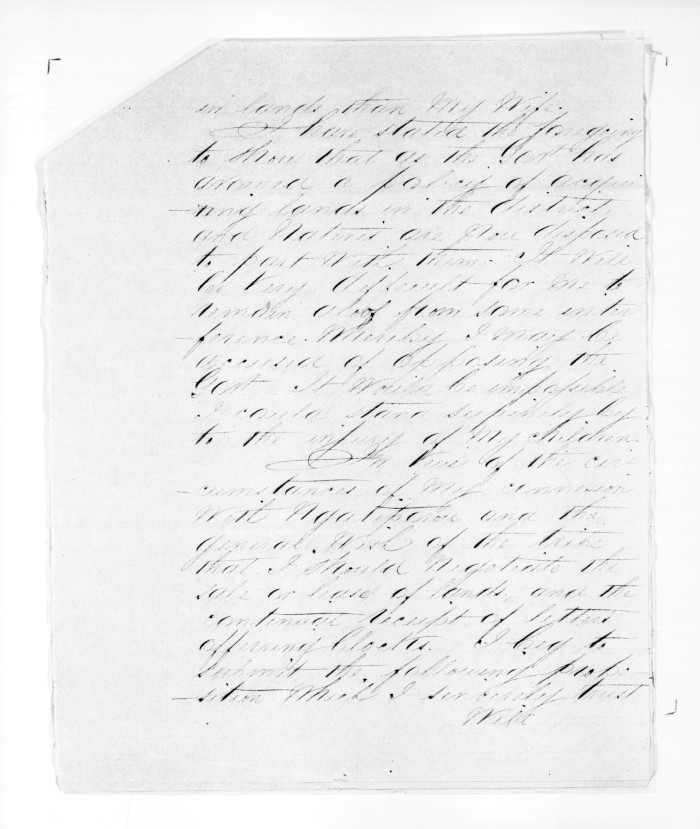 in lands than My Wife.
I have stated the foregoing
to show that as the Govt has
a policy of acqui
-ring lands in the district,
and Natives are Now disposed
to part With them. It Will
be Very difficult for me to
remain aloof from some inter
ference. Whereby I may be
accused of opposing the
Govt. It Would be impossible
I could stand supinely by
to the injury of My children.
In View of the cir
-cumstances of My connexion
With and the
general Wish of the tribe
that I should Negotiate the
sale or lease of lands, and the
continuge receipt of letters
offering blocks. I beg to
submit the following propo
-sition Which I sincerely trust
Will